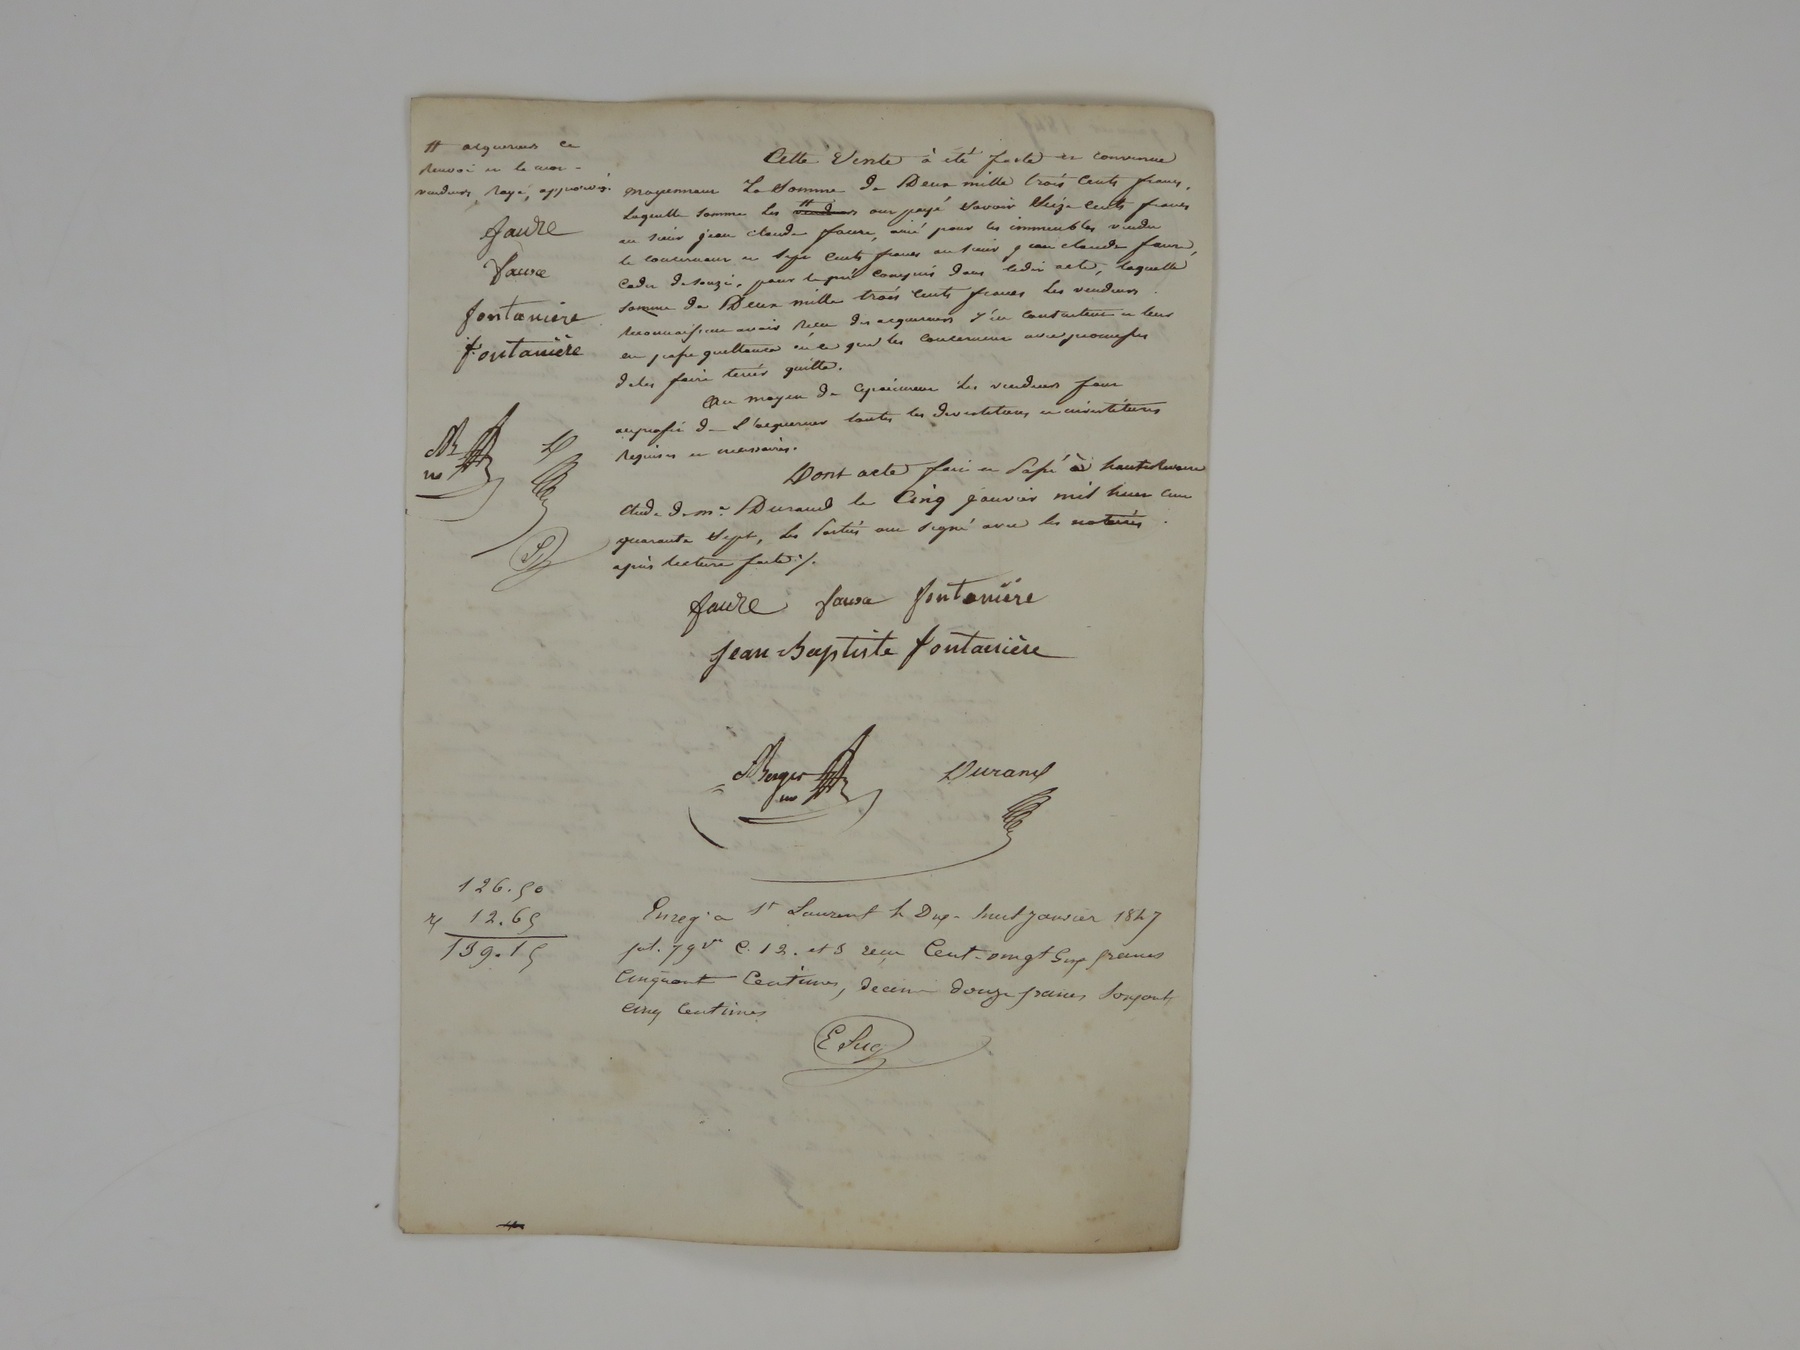 # acquereurs ce
renvoi et le mot
vendeurs, rayé, approuvés.
faure
faure
fontanière
fontanière
Cette Vente à été faite et convenue
moyennant La Somme de Deux mille trois Cents francs,
Laquelle somme les vendeurs ont payé Savoir Seize Cents francs
au sieur jean claude faure, ainé pour les immeubles vendu
le concernant et sept Cents francs au sieur jean claude faure,
Cadet de Souzi, pour le pré compris dans ledit acte, laquelle
Somme de Deux mille trois Cents francs Les vendeurs
reconnaissent avoir reçu des acquereurs s'en contentent et leur
en passe quittance en ce que les concernent avec promesses
de les faire tenir quitte.
Au moyen de ce paiement Les vendeurs font
au profit de L'acquereur toutes les devestitures et investitures
requises et necessaires.
Dont acte fait et Passé à hauterivoire
étude de me. Durand le Cinq janvier mil huit cent
quarante Sept, Les Parties ont signé avec les notaires
après lecture faite ./.
faure faure fontanière
jean Baptiste fontanière
Berger
no
Durand
126.50
12.65
139.15
Enreg. a St Laurent le huit janvier 1847
fol. 79 vo C. 12. et 3 reçu Cent-vingt Six francs
Cinquante Centimes, decime douze francs Soixante
cinq Centimes